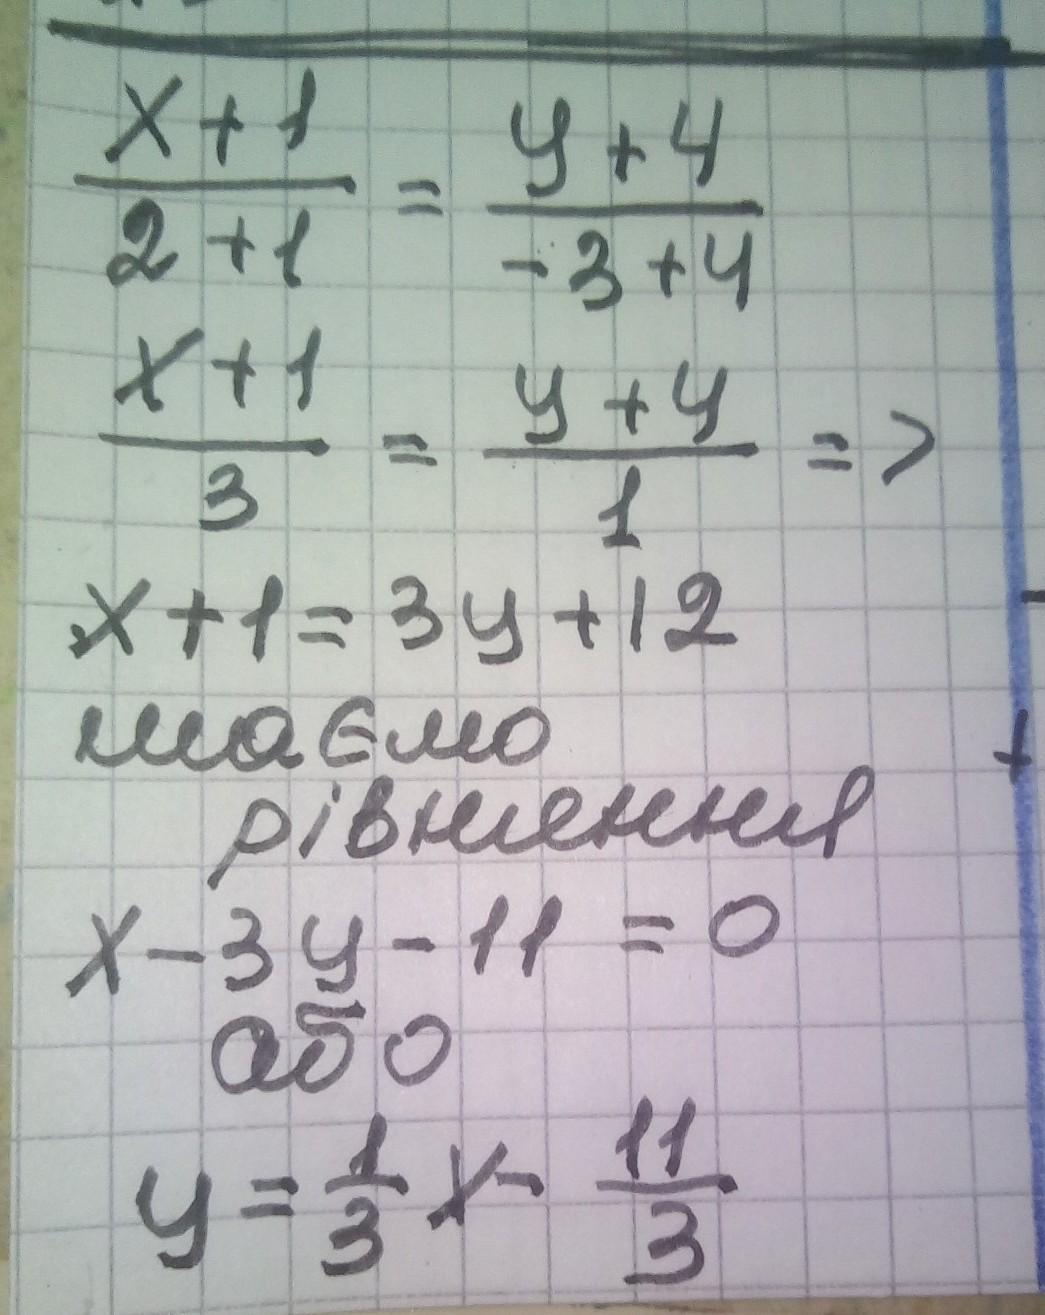 x + 1 / 2 + 1 = y + 4 / -3 + 4
x + 1 / 3 = y + 4 / 1 =>
x + 1 = 3y + 12
маємо
рівняння
x - 3y - 11 = 0
або
y = 1/3 x - 11/3